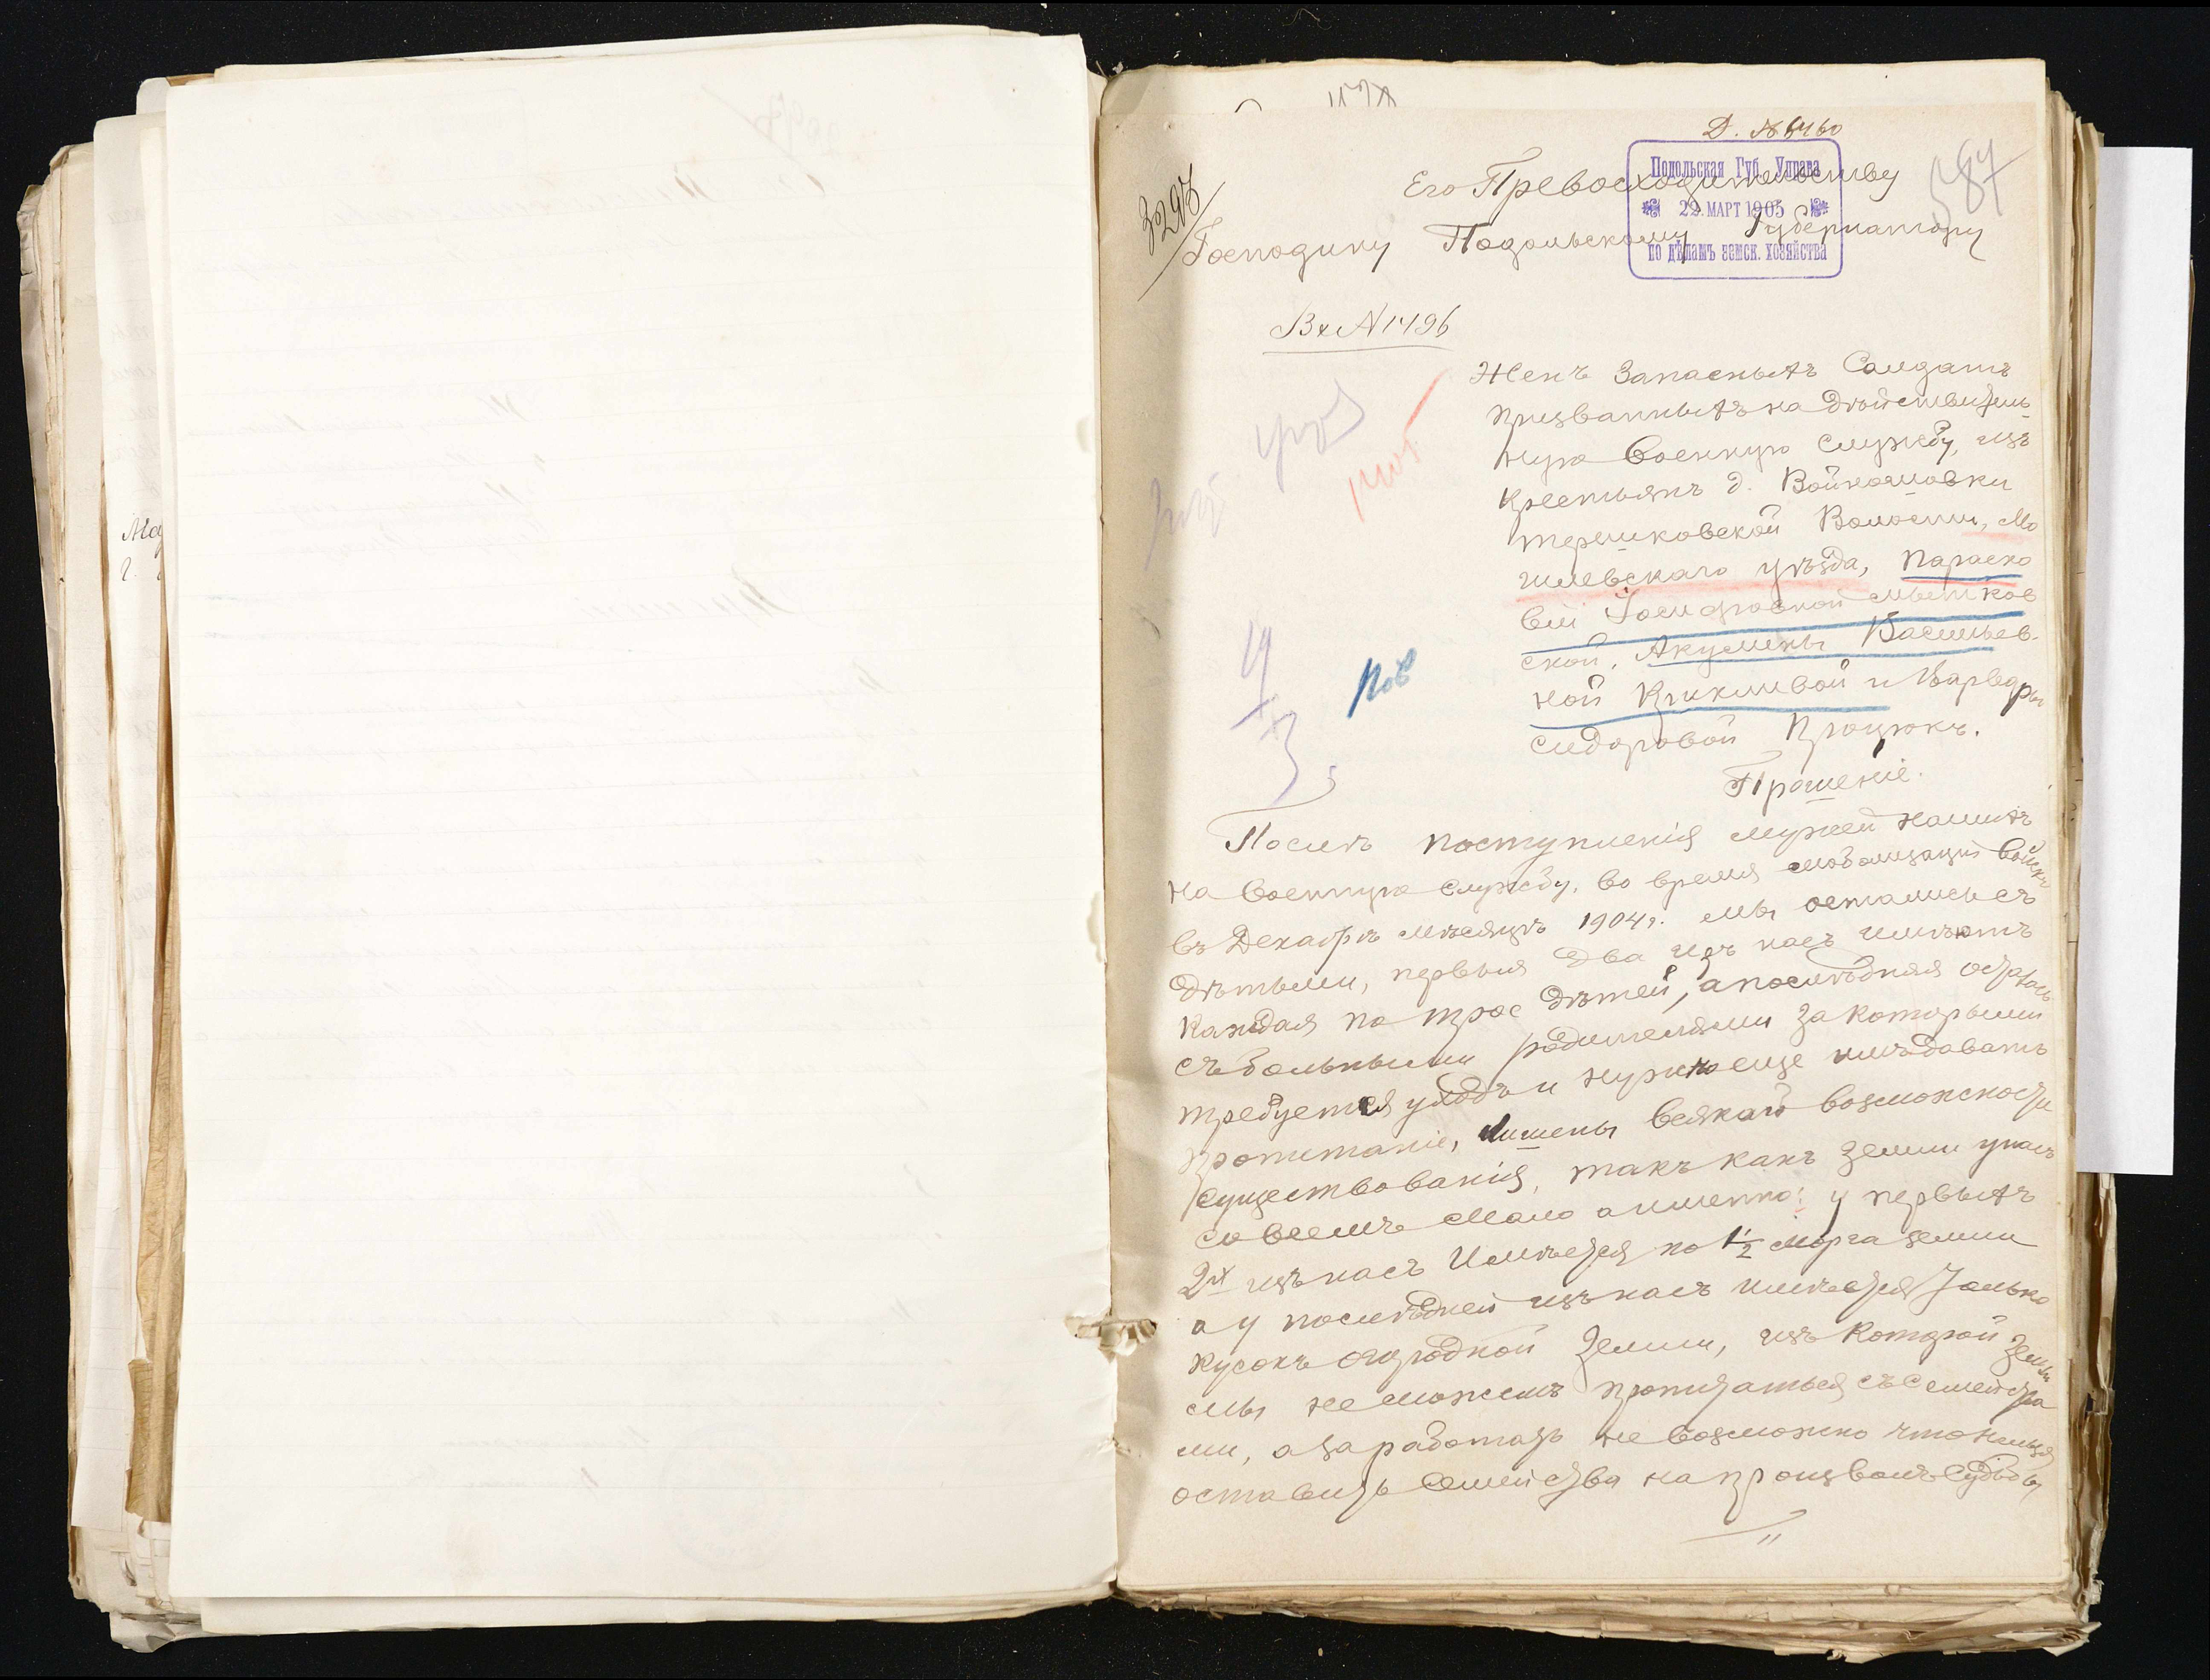 Д. № 6460
Подольская Губ. Управа
22. МАРТ 1905
по дѣламъ земск. хозяйства
587
3297
Его Превосходительству
Господину Подольскому Губернатору
Вх № 1496
Женъ Запасныхъ Солдатъ
призванныхъ на дѣйствитель
ную военную службу, изъ
крестьянъ д. Войнашовки
терешковской Волости, Мо
гилевскаго уѣзда, Параско
вiи
ской, Акулины Васильев-
ной Кикливой и Варвары
сидоровой Процюкъ.
Прошенiе.
Послѣ поступленiя мужей нашихъ
на военную службу, во время мобализацiи войскъ
въ Декабрѣ мѣсяцѣ 1904 г. мы остались съ
дѣтьми, первыя два изъ насъ имѣютъ
каждая по трое дѣтей, а послѣдняя осталась
съ больными родителями за которыми
требуется уходъ и нужно еще имъ давать
пропитанiе, лишены всякаго возможности
существованiя, такъ какъ земли у насъ
совсемъ мало а именно: у первыхъ
2х изъ насъ имѣется по 1½ морга земли
а у послѣдней изъ насъ имѣется только
кусокъ огородной земли, изъ которой земли
мы не можемъ пропитаться съ семейства
ми, а заработать не возможно что нельзя
оставить семейства на произволъ судьбы